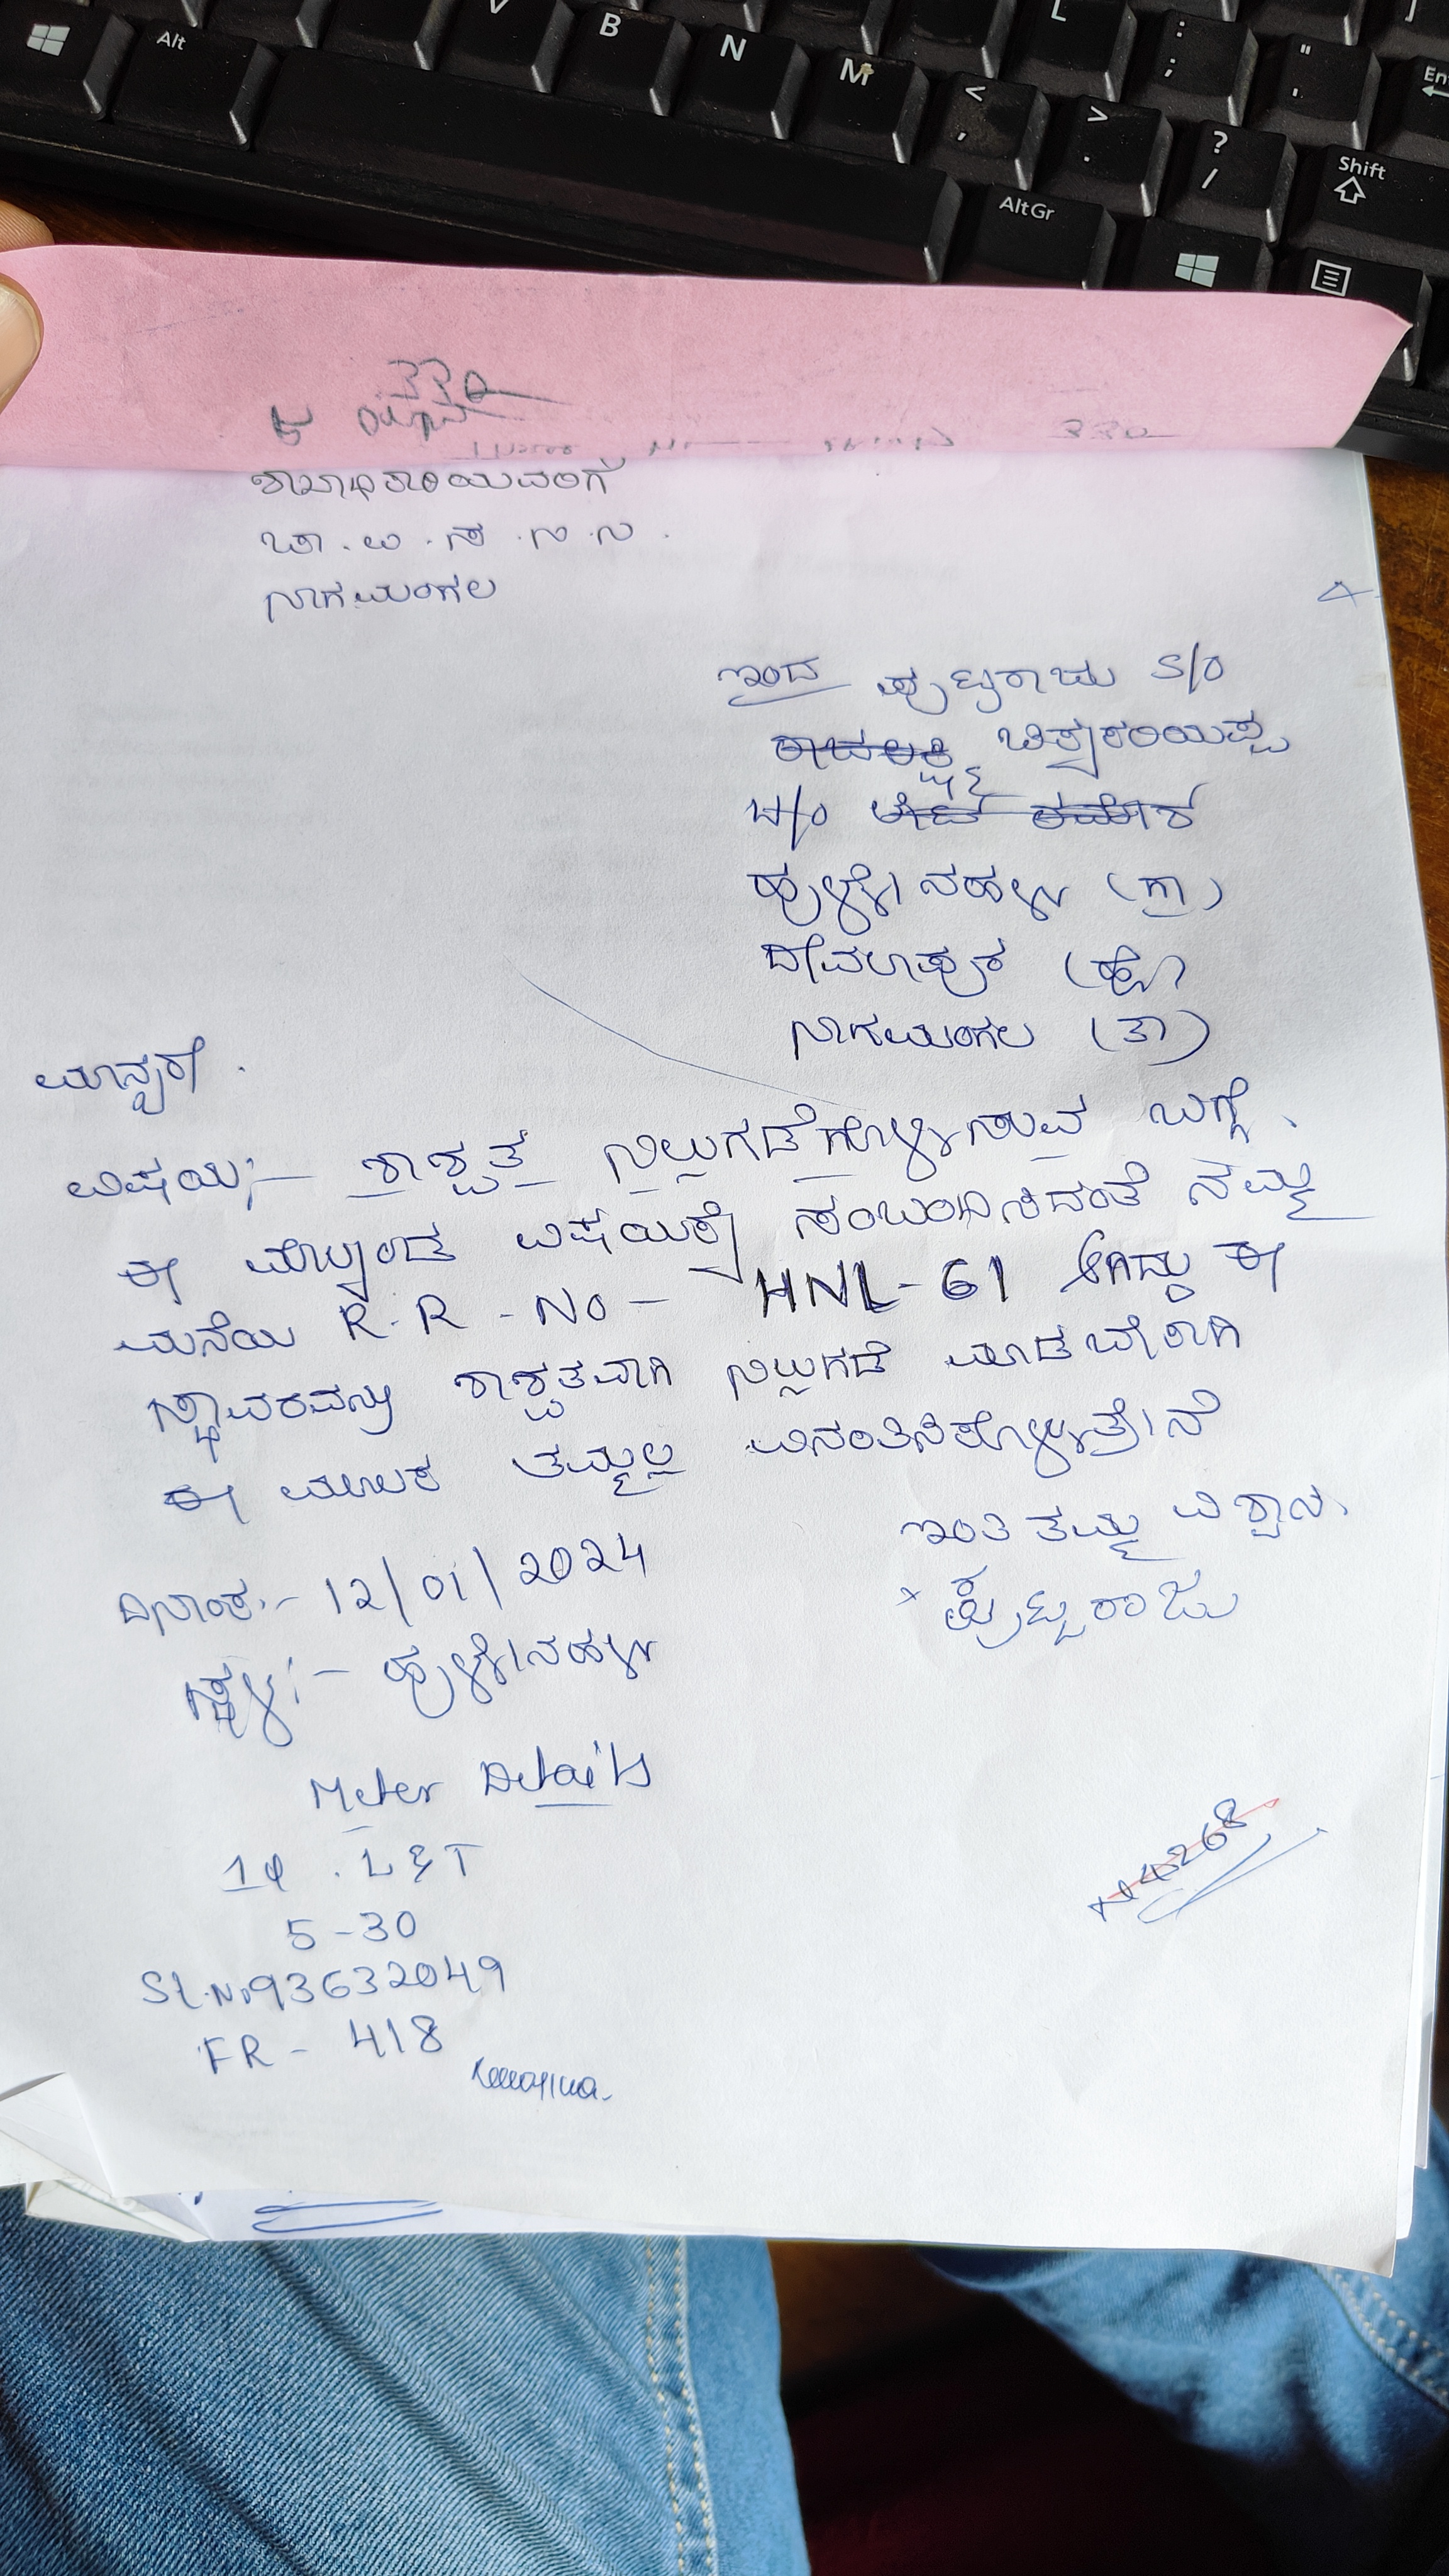 Alt
V
B
N
M
L
<
,
>
.
:
;
"
'
?
/
AltGr
Shift
330
ಶಾಖಾಧಿಕಾರಿಯವರಿಗೆ
ಚಾ.ವಿ.ಸ.ನಿ.ನಿ.
ನಾಗಮಂಗಲ
ಇಂದ ಪುಟ್ಟರಾಜು S/O
ಚಿಕ್ಕಕರಿಯಪ್ಪ
W/O
ಹುಳ್ಳೇನಹಳ್ಳಿ (ಗ್ರಾ)
ದೇವಲಾಪುರ (ಹೋ)
ನಾಗಮಂಗಲ (ತಾ)
ಮಾನ್ಯರೇ.
ವಿಷಯ:- ಶಾಶ್ವತ ನಿಲ್ಲುಗಡೆಗೊಳ್ಳಿಸುವ ಬಗ್ಗೆ.
ಈ ಮೇಲ್ಕಂಡ ವಿಷಯಕ್ಕೆ ಸಂಬಂಧಿಸಿದಂತೆ ನಮ್ಮ
ಮನೆಯ R.R - NO - HNL-61 ಆಗಿದ್ದು ಈ
ಸ್ಥಾವರವನ್ನು ಶಾಶ್ವತವಾಗಿ ನಿಲ್ಲುಗಡೆ ಮಾಡಬೇಕಾಗಿ
ಈ ಮೂಲಕ ತಮ್ಮಲ್ಲಿ ವಿನಂತಿಸಿಕೊಳ್ಳುತ್ತೇನೆ
ಇಂತಿ ತಮ್ಮ ವಿಶ್ವಾಸಿ.
x ಪುಟ್ಟರಾಜು
ದಿನಾಂಕ:- 12/01/2024
ಸ್ಥಳ:- ಹುಳ್ಳೇನಹಳ್ಳಿ
Meter Details
1φ . L&T
5-30
SL.No93632049
FR - 418
N4268